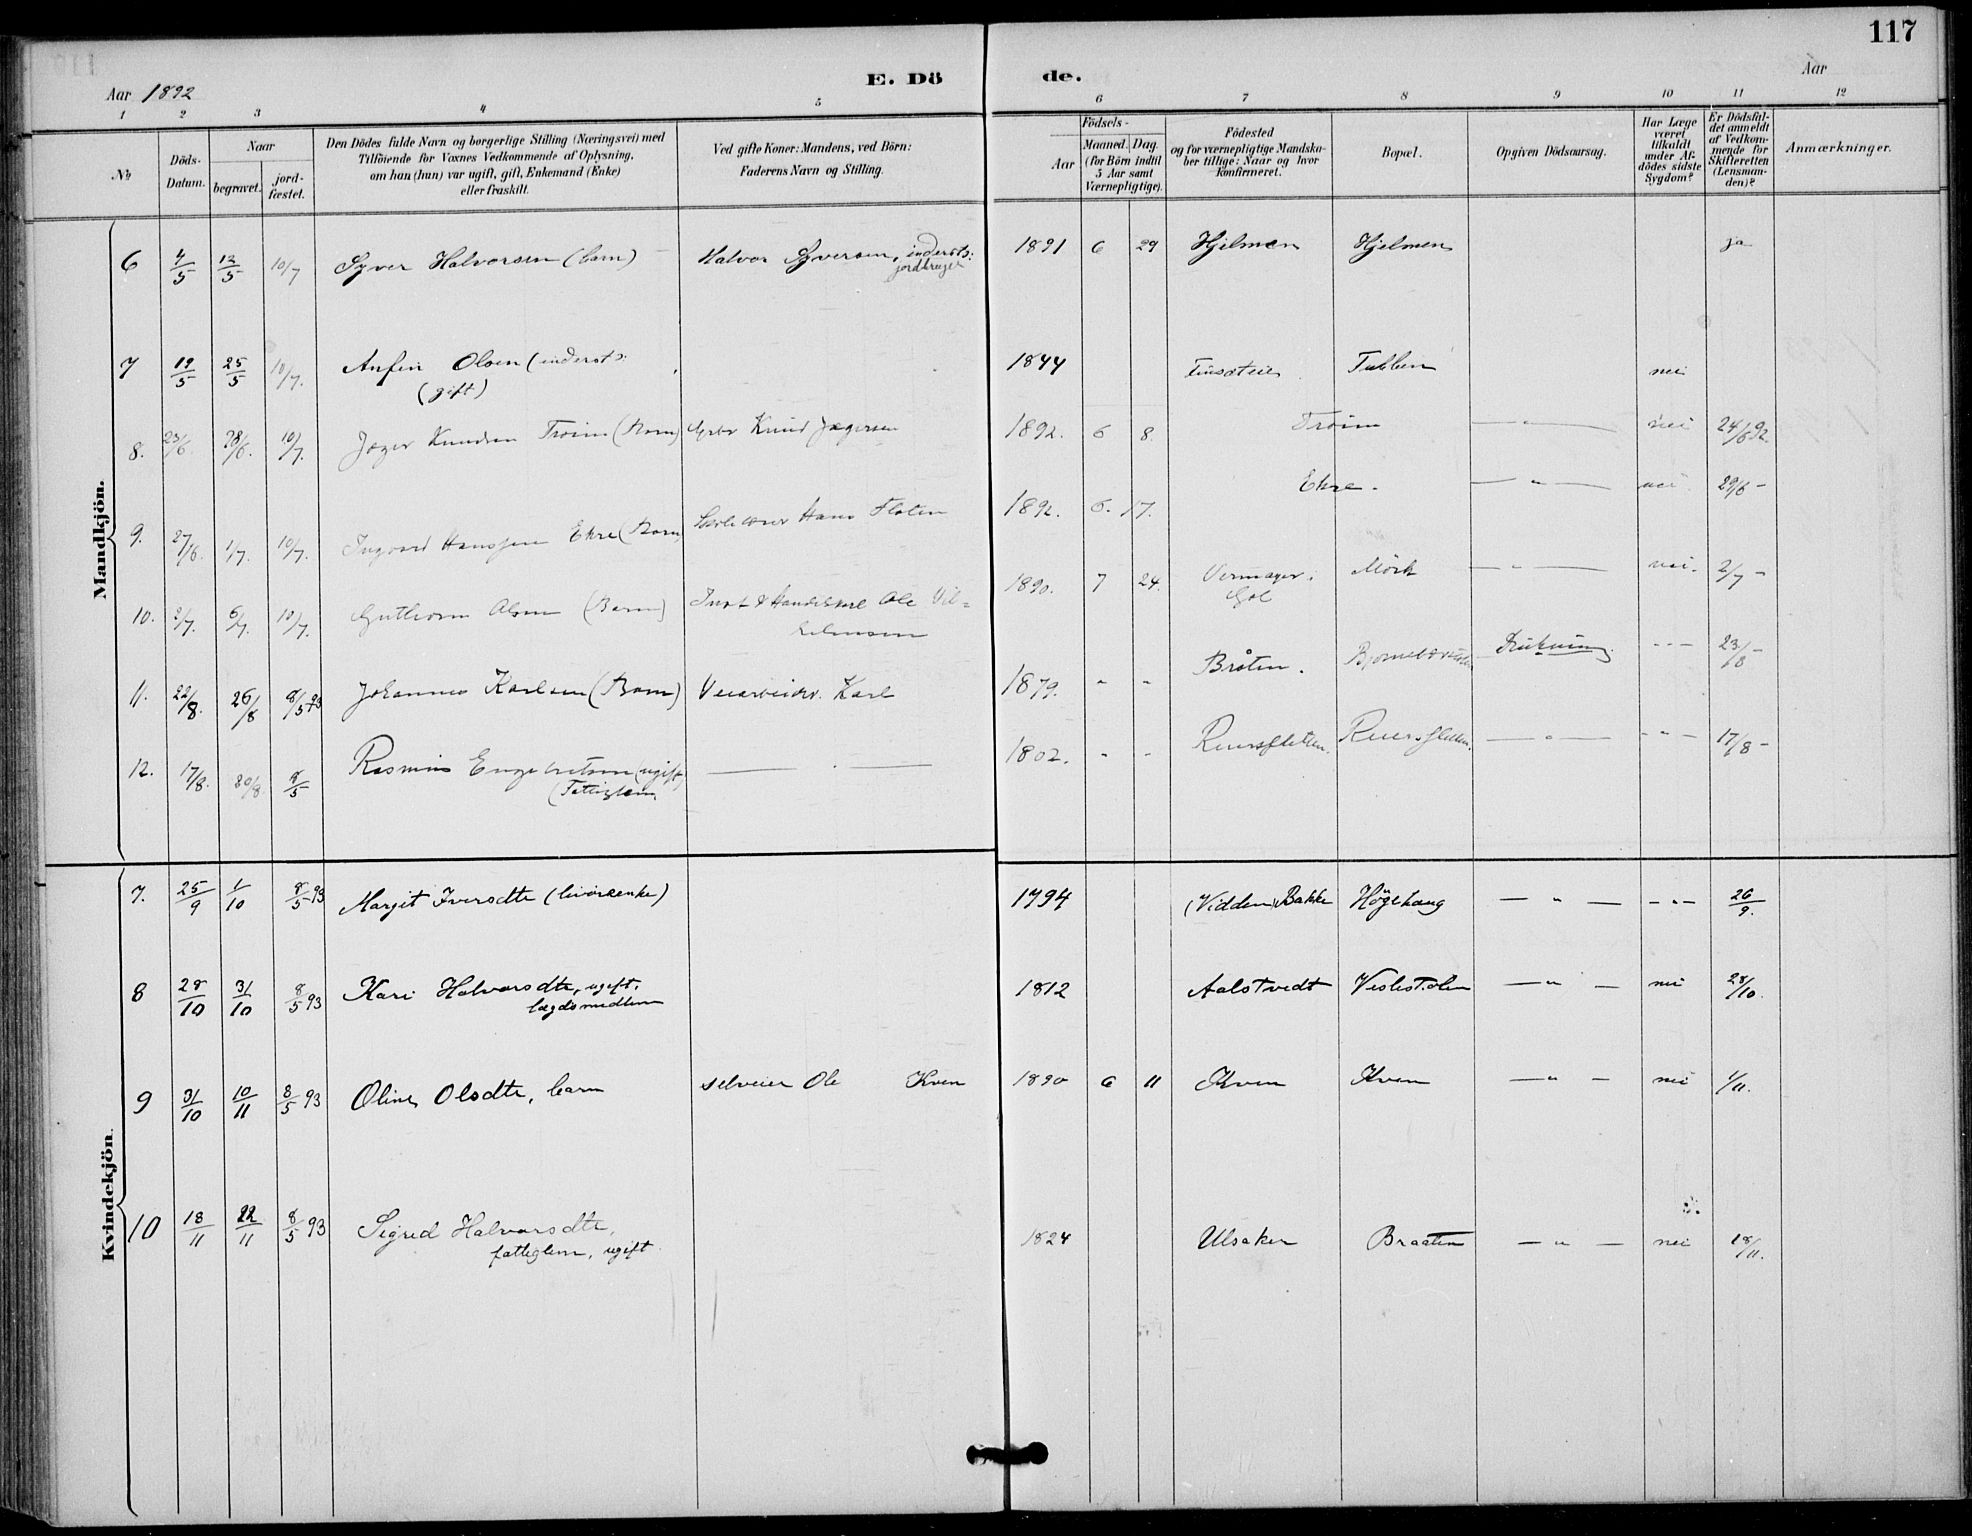 117
E. Dö de.
Aar 1892
Aar
1 2 3 4 5 6 7 8 9 10 11 12
No
Döds-Datum.
Naar
begravet.
jord-fæstet.
Den Dödes fulde Navn og borgerlige Stilling (Næringsvei) med
Tilföiende for Voxnes Vedkommende af Oplysning,
om han (hun) var ugift, gift, Enkemand (Enke)
eller fraskilt.
Ved gifte Koner: Mandens, ved Börn:
Faderens Navn og Stilling.
Födsels-
Aar
Maaned. Dag.
(for Börn indtil
5 Aar samt
Værnepligtige).
Födested
og for værnepligtige Mandska-
ber tillige: Naar og hvor
konfirmeret.
Bopæl.
Opgiven Dödsaarsag.
Har Læge
været
tilkaldt
under Af-
dödes sidste
Sygdom?
Er Dödsfal-
det anmeldt
af Vedkom-
mende for
Skifteretten
(Lensman-
den)?
Anmærkninger.
Mandkjön.
6 4/5 12/5 10/7 Syver Halvorsen (barn) Halvor Syversen, inderst: 1891 6 29 Hjelmen Hjelmen ja
jordbruger
7 19/5 25/5 10/7. Anfin Olsen (inderst: 1844 Tubben nei
(gift)
8. 23/6 28/6. 10/7. Jøger Knudsen Troim (Barn) Gbr Knud Jøgersen 1892. 6 8. Troim — " — nei 24/6 92.
9. 27/6. 1/7. 10/7. Ingvard Hanssen Ehre (Barn) Hans Floten 1892. 6. 17. Ehre. — " — nei 29/6 -
10. 2/7. 6/7. 10/7. Guthorm Olsen (Barn) Ole Vil= 1890. 7 24. Mörk — " — nei. 2/7 -
helmsen Gol
11. 22/8. 26/8 8/5 93 Johannes Karlsen (Barn) Veiarbeider. Karl 1879. - - Bråten. Drukning. - - - 23/8 -
12. 17/8. 20/8. 8/5 Rasmus Engebretsen (ugift) — . — 1802. - - Ruersfletten. Ruersfletten. — " — - " - 17/8 -
(Fattiglem.
Kvindekjön.
7. 25/9 1/10 8/5 93 Margit Iversdtr (livöreenke) 1794 (Vidden) Bakke Högehaug — " — - " - 26/9.
8 28/10 31/10 8/5 93 Kari Halvorsdtr, ugift. 1812 Aalstvedt Veslestølen — " — nei 28/10.
lægdsmedlem
9 31/10 10/11 8/5 93 Oline Olsdtr, barn selveier Ole Kven 1890 6 11 Kven Kven — " — nei 1/11.
10 18/11 22/11 8/5 93 Sigrid Halvorsdtr, 1824 Ulsaker Braaten — " — nei 18/11.
fattiglem, ugift